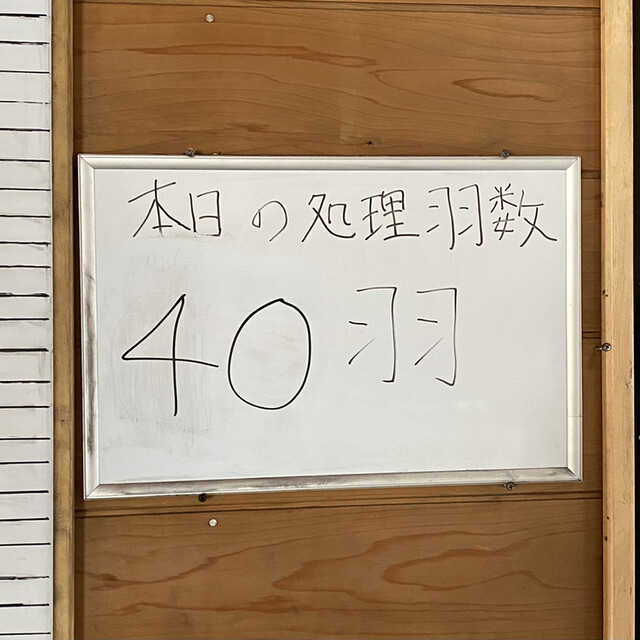 本日の処理羽数
40羽